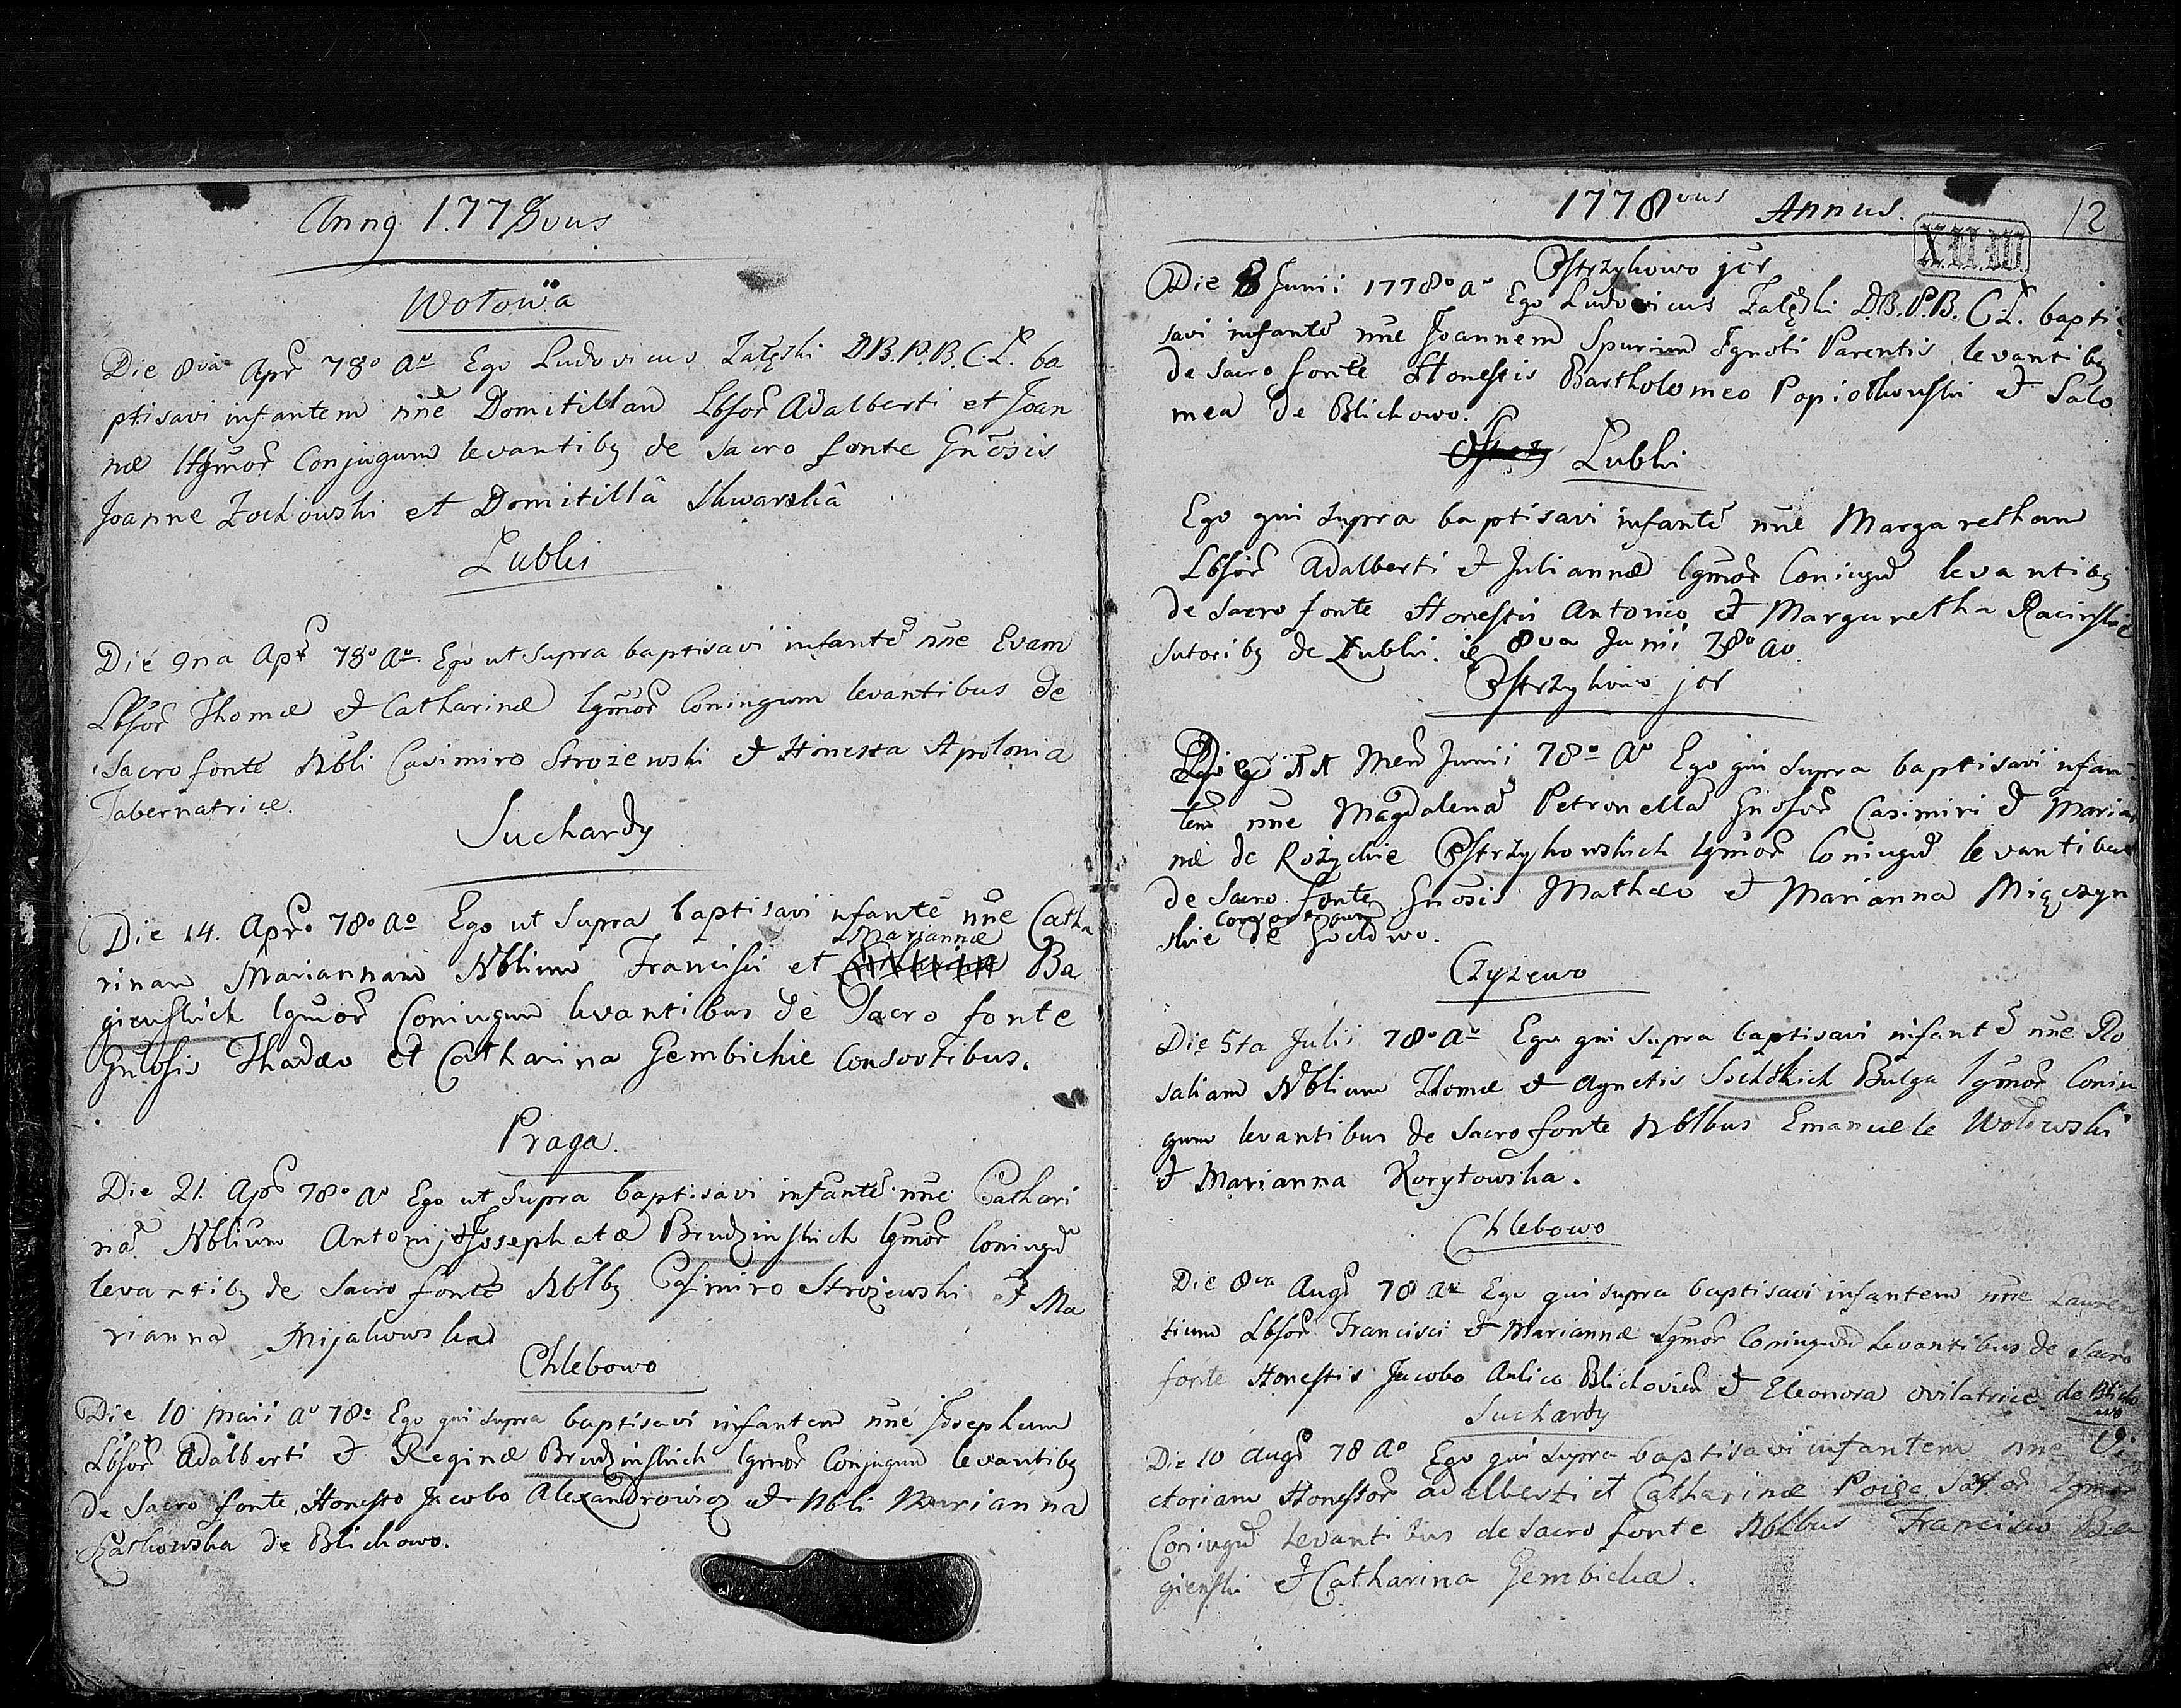 Anng 1.778vus
Wołowa
Die 8va Apr 78º Aº Ego Ludovicus Załęski D.B.P.B.C.Ł. ba
ptisavi infantem nñe Domitillam Lbſor Adalberti et Joan
næ ltgmor Conjugum levantibg de Sacro fonte Gnosis
Joanne Żochowski et Domitillâ Skwarskâ
Lubki
Die 9na Apr 78º Aº Ego ut supra baptisavi infantē nñe Evam
Lbſor Thomæ et Catharinæ lgmor Coniugum levantibus de
Sacro fonte Nbli Casimiro Strożewski et Honesta Apolonia
Tabernatrice.
Suchardy
Die 14. Apr. 78º Aº Ego ut Supra baptisavi nfantē nñe Catha
rinam Mariannam Nblium Francisci et Mariannæ Ba
gieńſkich lgmor Coniugum levantibus de Sacro fonte
Gnosis Thadæo et Catharina Gembickie Consortibus.
Praga
Die 21. Apr 78º Aº Ego ut Supra baptisavi infantē nñe Cathari
nā Nblium Antonij et Josephatæ Brudzinſkich lgmor Coniugū
levantibg de Sacro fonte Nblbg Casimiro Strożewski et Ma
rianna Mijakowska
Chlebowo
Die 10 Maii Aº 78º Ego qui supra baptisavi infantem nñe Josephum
Lbſor Adalberti et Reginæ Brudzinſkich lgmor Conjugum levantibg
de Sacro fonte, Honesto Jacobo Alexandrowicz et Nbli Marianna
de Blichowo.
1778vus Annus. 12
Ostrzykowo
Die 8 Junii 1778º Aº Ego Ludovicus Załęski D.B.P.B.C.Ł. bapti
savi infantē nñe Joannem Spurium Ignoti Parentis levantibg
de Sacro fonte Honestis Bartholomeo Popiołkowski et Salo
mea de Blichowo.
Lubki
Ego qui supra baptisavi infantē nñe Margaretham
Lbſor Adalberti et Juliannæ lgmor Coniugū levantibg
de Sacro fonte Honestis Antonio et Margaretha Racinskie
Sutoribg de Lubki. 8va Junii 78º Aº
Ostrzykowo
Die Mens Junii 78º Aº Ego qui supra baptisavi nfan
tem nñe Magdalenā Petronellā Gnosor Casimiri et Marian
næ de Rożyckie Ostrzykowskich lgmor Coniugū levantibus
de Sacro fonte Gnosis Mathæo et Marianna Miączyn
skie Consortibus de
Czyżewo
Die 5ta Julii 78º Aº Ego qui supra baptisavi infantē nñe Ro
saliam Nblium Thomæ et Agnetis Sochskich Bulga lgmor Coniu
gum levantibus de Sacro fonte Nblbus Emanuele Wołowski
et Marianna Korytowska.
Chlebowo
Die 8va Aug 78 Aº Ego qui supra baptisavi infantem nñe Lauren
tium Lbſor Francisci et Mariannæ lgmor Coniugum levantibus de Sacro
fonte Honestis Jacobo Aulico et Eleonora ovilatrice de Blicho
wo
Suchardy
Die 10 Aug 78 Aº Ego qui supra baptisavi infantem nñe Vi
ctoriam Honestor Adalberti et Catharinæ lgmor
Coniugū levantibus de Sacro fonte Nblbus Francisco Ba
gieński et Catharina Gembicka.